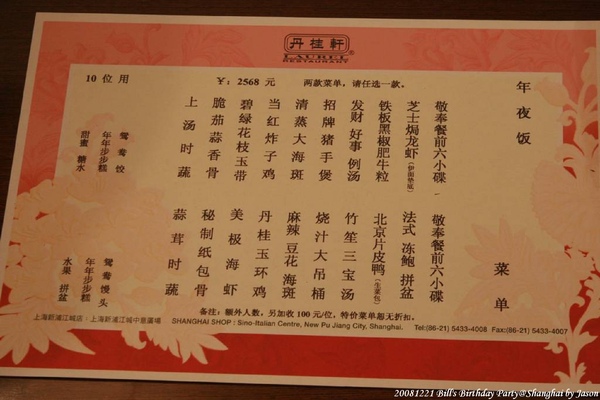 丹桂軒
LAUREL
RESTAURANT
10 位用
￥: 2568 元
两款菜单，请任选一款。
年夜饭
菜单
敬奉餐前六小碟
芝士焗龙虾(伊面垫底)
铁板黑椒肥牛粒
发财好事例汤
招牌猪手煲
清蒸大海斑
当红炸子鸡
碧绿花枝玉带
脆茄蒜香骨
上汤时蔬
鸳鸯饺
年年步步糕
甜蜜糖水
敬奉餐前六小碟
法式冻鲍拼盆
北京片皮鸭(生菜包)
竹笙三宝汤
烧汁大吊桶
麻辣豆花海斑
丹桂玉环鸡
美极海虾
秘制纸包骨
蒜茸时蔬
鸳鸯馒头
年年步步糕
水果拼盆
备注：额外人数，另加收 100 元/位，特价菜单恕无折扣。
上海新浦江城店：上海新浦江城中意廣場
SHANGHAI SHOP : Sino-Italian Centre, New Pu Jiang City, Shanghai.
Tel:(86-21) 5433-4008 Fax:(86-21) 5433-4007
20081221 Bill's Birthday Party@Shanghai by Jason